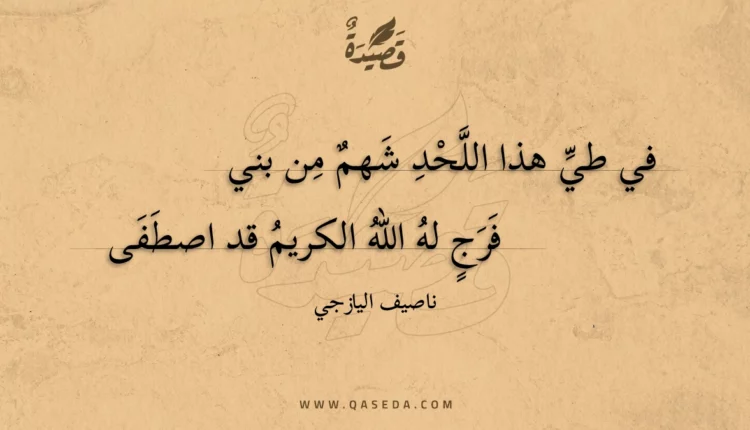 قَصِيْدَةٌ
في طيِّ هذا اللَّحْدِ شَهمٌ مِن بني
فَرَجٍ لهُ اللهُ الكريمُ قد اصطَفَى
ناصيف اليازجي
WWW.QASEDA.COM